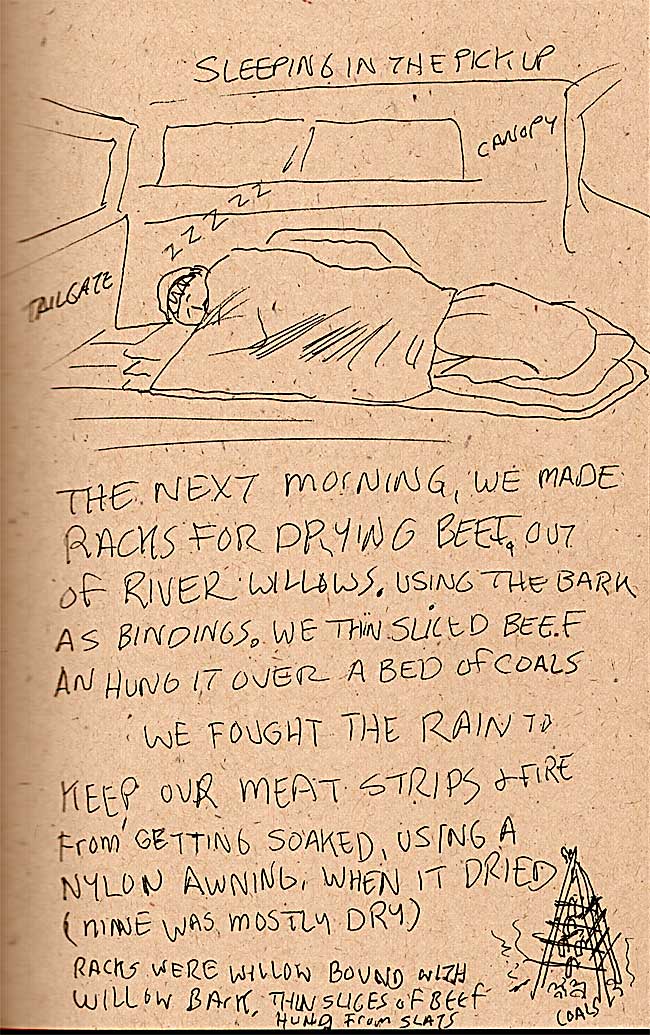 SLEEPING IN THE PICKUP
CANOPY
Z Z Z Z Z Z
TAILGATE
THE NEXT MORNING, WE MADE
RACKS FOR DRYING BEEF, OUT
OF RIVER WILLOWS. USING THE BARK
AS BINDINGS. WE THIN SLICED BEEF
AN HUNG IT OVER A BED OF COALS
WE FOUGHT THE RAIN TO
KEEP OUR MEAT STRIPS & FIRE
FROM GETTING SOAKED, USING A
NYLON AWNING. WHEN IT DRIED
(MINE WAS MOSTLY DRY)
RACKS WERE WILLOW BOUND WITH
WILLOW BARK, THIN SLICES OF BEEF
HUNG FROM SLATS
COALS